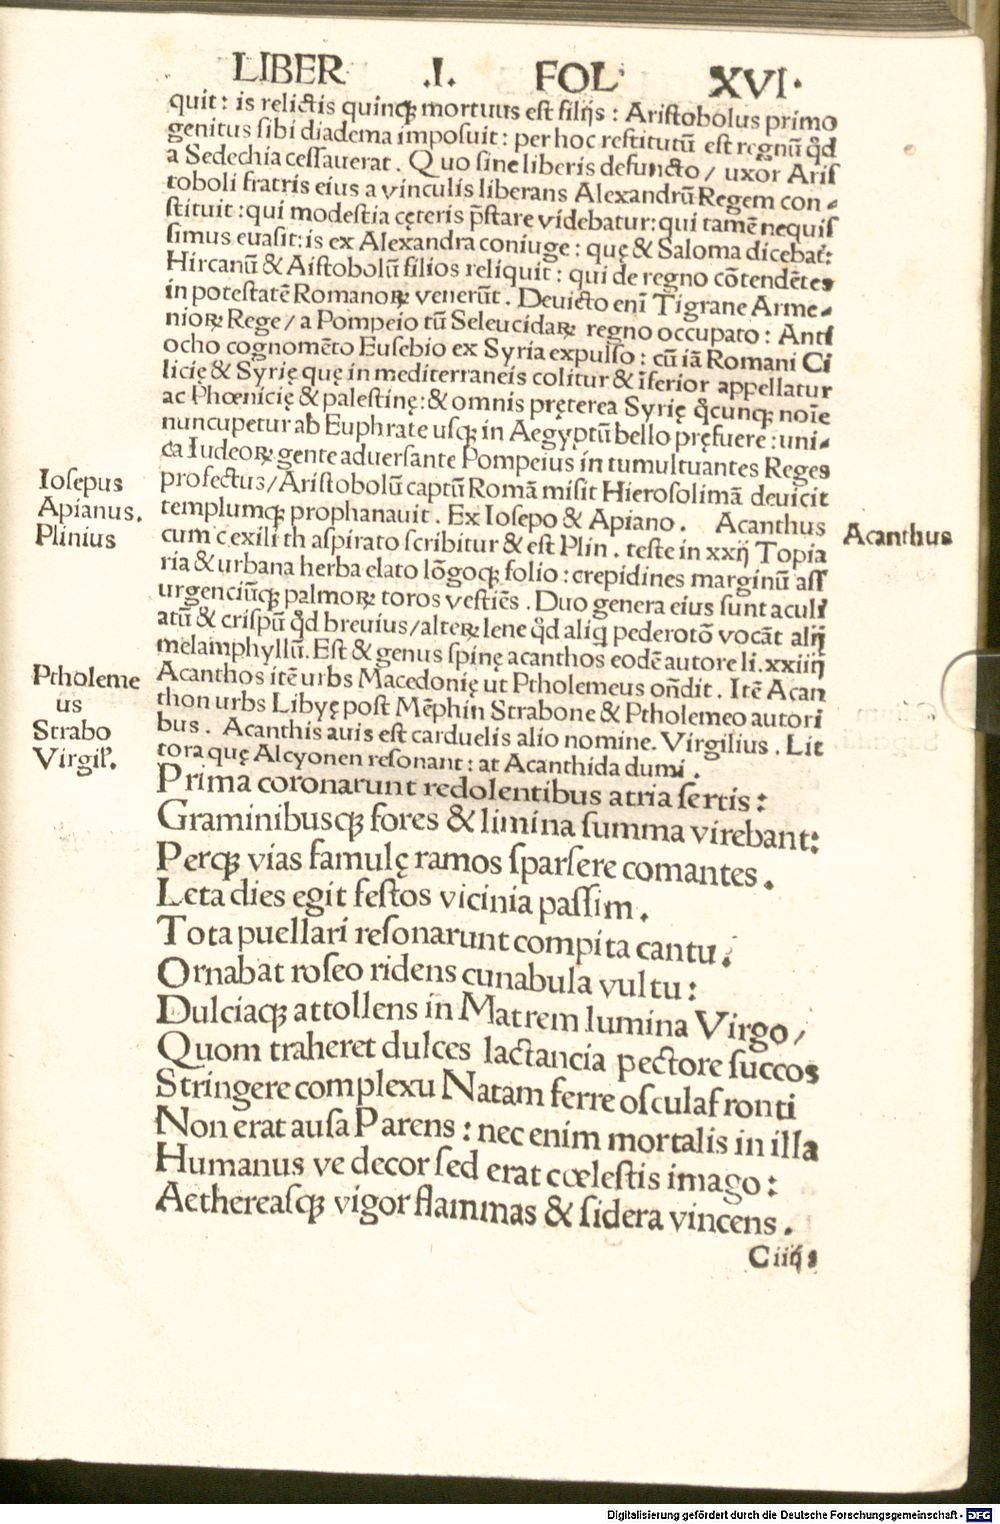 LIBER .I. FOL XVI.
quit: is relictis quinqꝫ mortuus est filijs : Aristobolus primo
genitus sibi diadema imposuit : per hoc restitutū est regnū qd̄
a Sedechia cessauerat . Quo sine liberis defuncto / uxor Aris
toboli fratris eius a vinculis liberans Alexandrū Regem con-
stituit : qui modestia cęteris p̄stare videbatur: qui tamē nequis
simus euasit: is ex Alexandra coniuge : quę & Saloma dicebat̄:
Hircanū & Aistobolū filios reliquit : qui de regno cōtendētes
in potestatē Romanoꝝ venerūt . Deuicto eni᷄ Tigrane Arme-
nioꝝ Rege / a Pompeio tū Seleucidaꝝ regno occupato : Anti
ocho cognomēto Eusebio ex Syria expulso : cū iā Romani Ci
licię & Syrię quę in mediterraneis colitur & īferior appellatur
ac Phœnicię & palestinę: & omnis pręterea Syrię qcunqꝫ noīe
nuncupetur ab Euphrate usqꝫ in Aegyptū bello pręfuere : uni-
ca Iudeoꝝ gente aduersante Pompeius in tumultuantes Reges
profectus / Aristobolū captū Romā misit Hierosolimā deuicit
templumqꝫ prophanauit . Ex Iosepo & Apiano . Acanthus
cum c exili th aspirato scribitur & est Plin . teste in xxij Topia
ria & urbana herba elato lōgoqꝫ folio : crepidines marginū ass
urgenciūqꝫ palmoꝝ toros vestiēs . Duo genera eius sunt aculi
atū & crispū qd̄ breuius / alteꝝ lene qd̄ aliq pederotō vocāt alij
melamphyllū. Est & genus spinę acanthos eodē autore li. xxiiij
Acanthos itē urbs Macedonię ut Ptholemeus on̄dit . Itē Acan
thon urbs Libyę post Mēphin Strabone & Ptholemeo autori
bus . Acanthis auis est carduelis alio nomine. Virgilius . Lit
tora quę Alcyonen resonant : at Acanthida dumi .
Prima coronarunt redolentibus atria sertis :
Graminibusqꝫ fores & limina summa virebant:
Perqꝫ vias famulę ramos sparsere comantes .
Leta dies egit festos vicinia passim .
Tota puellari resonarunt compita cantu .
Ornabat roseo ridens cunabula vultu :
Dulciaqꝫ attollens in Matrem lumina Virgo /
Quom traheret dulces lactancia pectore succos
Stringere complexu Natam ferre oscula fronti
Non erat ausa Parens : nec enim mortalis in illa
Humanus ve decor sed erat cœlestis imago :
Aethereasqꝫ vigor flammas & sidera vincens .
Ciiij
Iosepus
Apianus.
Plinius
Ptholeme
us
Strabo
Virgil'.
Acanthus
Digitalisierung gefördert durch die Deutsche Forschungsgemeinschaft - DFG